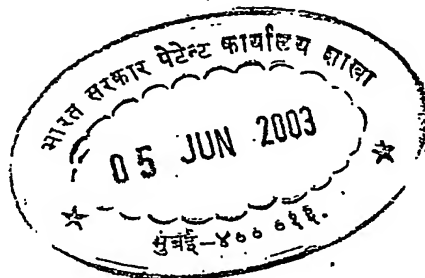 भारत सरकार पेटेन्ट कार्यालय शाखा
05 JUN 2003
मुंबई-४०० ०१३.